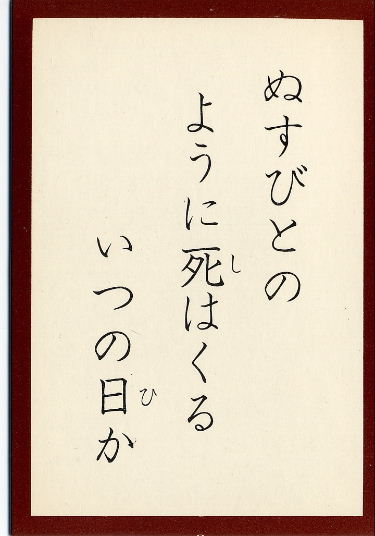 ぬすびとの
ように死はくる
し
いつの日か
ひ